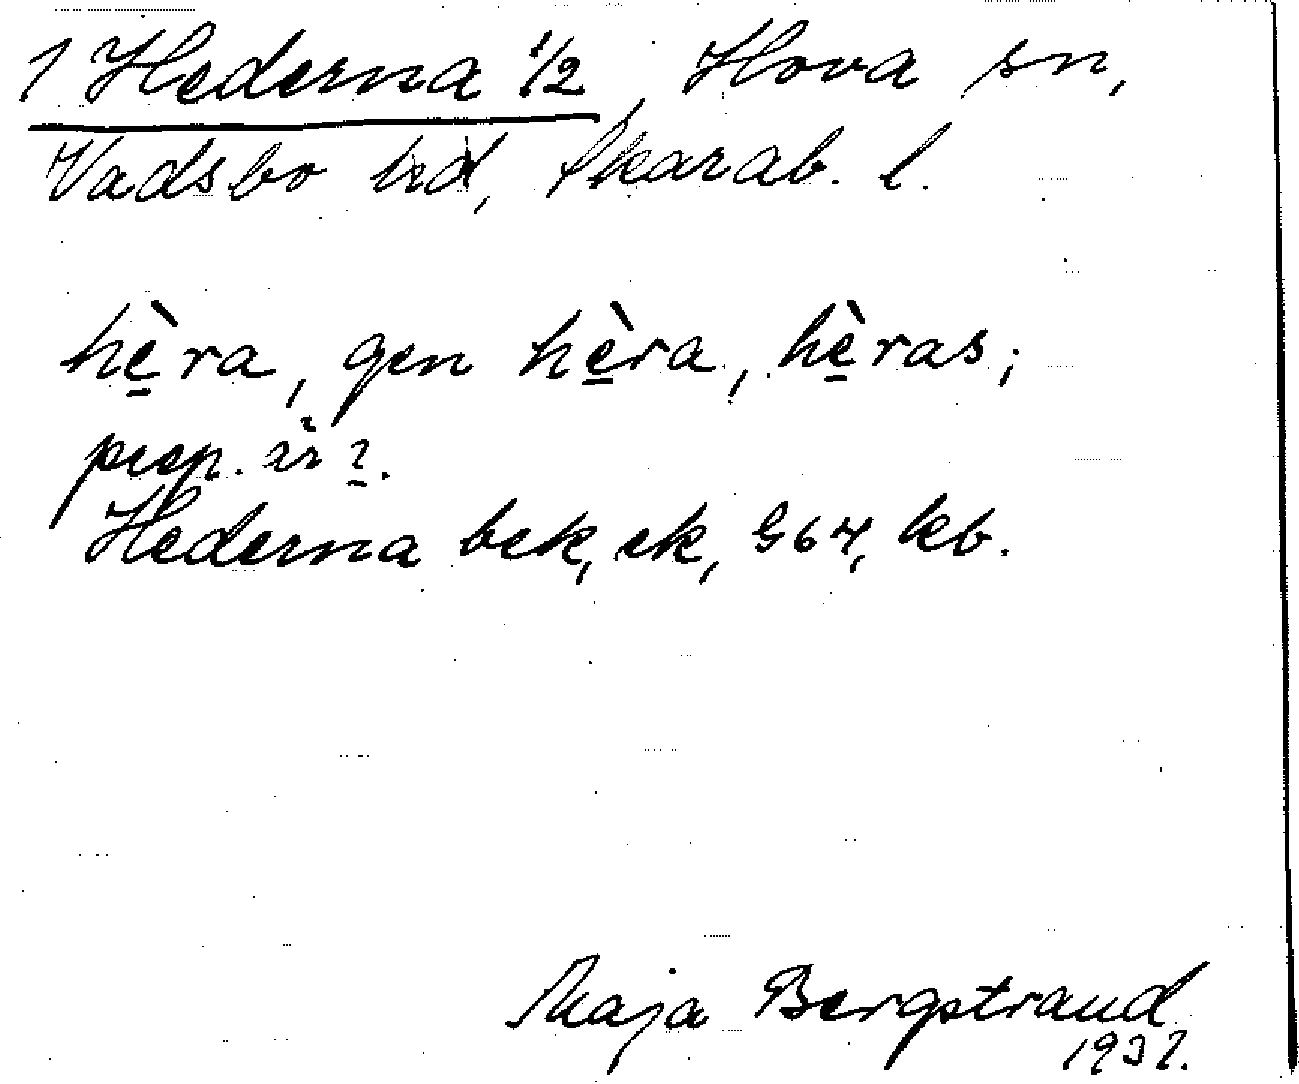 1 Hederna 1/2, Hova sn,
Vadsbo hd, Skarab. l.
hè̱ra, gen hè̱ra, hè̱ras;
prep. i
Hederna bek, ek, G64, kb.
Maja Bergstrand
1932.